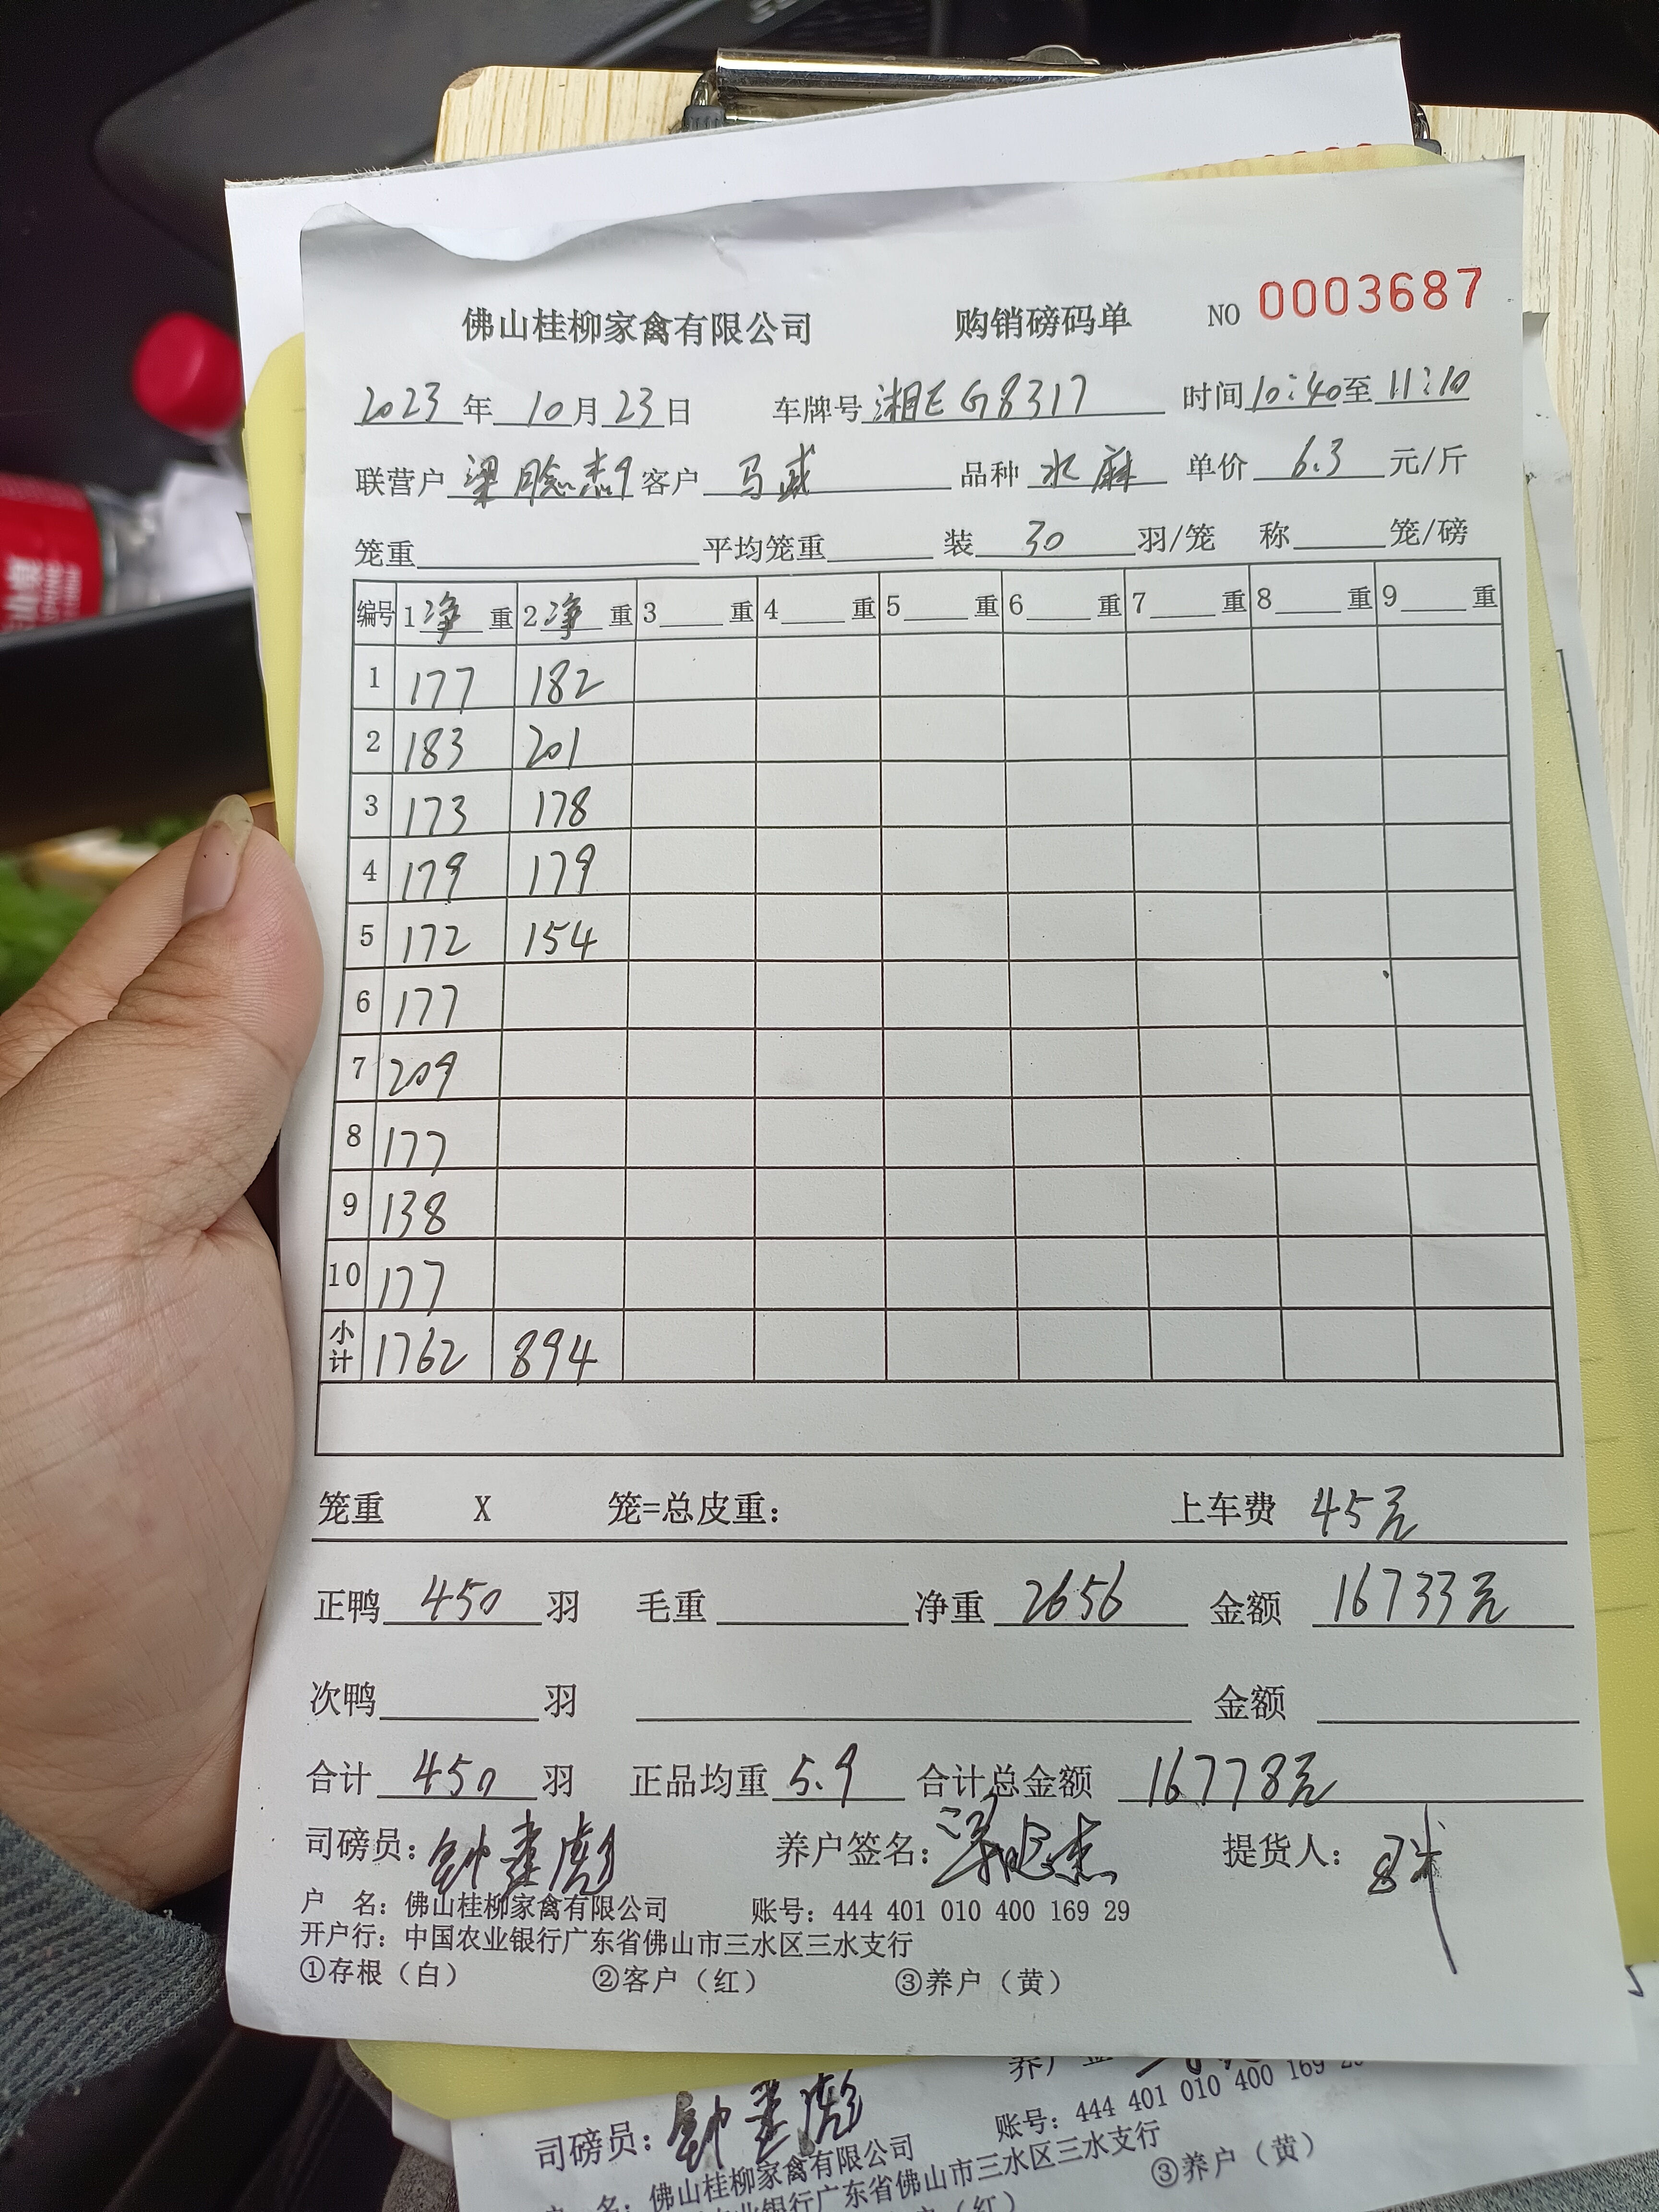 佛山桂柳家禽有限公司 购销磅码单 NO 0003687
2023年 10月23日 车牌号 湘E G8317 时间10:40至11:10
联营户 梁 杰9 客户 马威 品种 水麻 单价 6.3 元/斤
笼重 平均笼重 装 30 羽/笼 称 笼/磅
编号 1净重 2净重 3 重 4 重 5 重 6 重 7 重 8 重 9 重
1 177 182
2 183 201
3 173 178
4 179 179
5 172 154
6 177
7 209
8 177
9 138
10 177
小计 1762 894
笼重 X 笼=总皮重: 上车费 45元
正鸭 450 羽 毛重 净重 2656 金额 16733元
次鸭 羽 金额
合计 450 羽 正品均重 5.9 合计总金额 16778元
司磅员: 养户签名: 提货人:
户 名: 佛山桂柳家禽有限公司 账号: 444 401 010 400 169 29
开户行: 中国农业银行广东省佛山市三水区三水支行
①存根（白） ②客户（红） ③养户（黄）
司磅员:
账号: 444 401 010 400 169
名: 佛山桂柳家禽有限公司
业银行广东省佛山市三水区三水支行
（红） ③养户（黄）